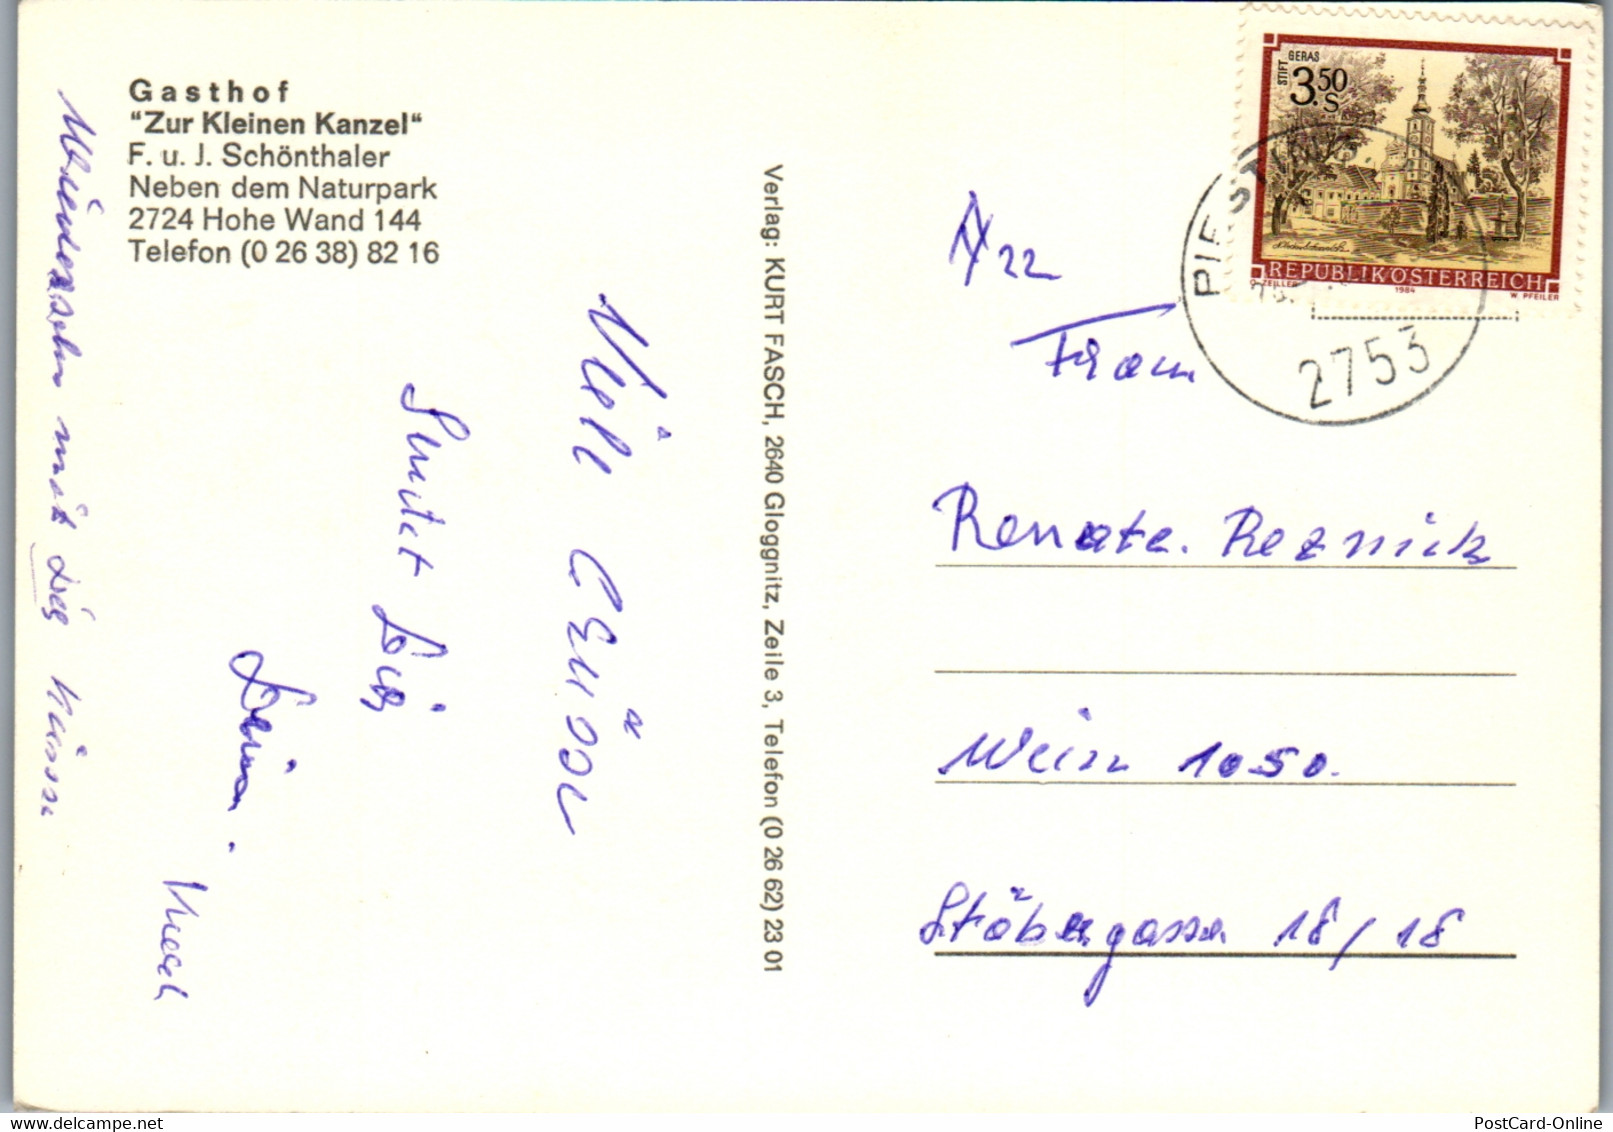 Gasthof
"Zur Kleinen Kanzel"
F. u. J. Schönthaler
Neben dem Naturpark
2724 Hohe Wand 144
Telefon (0 26 38) 82 16
Viele Grüsse
Sendet Dir
Deine
Wiedersehn mit Dir Küsse
Verlag: KURT FASCH, 2640 Gloggnitz, Zeile 3, Telefon (0 26 62) 23 01
STIFT GERAS
3.50
S
REPUBLIK ÖSTERREICH
O. ZEILLER 1984 W. PFEILER
PIESTING
2753
22
Frau
Renate Reznick
Wein 1050.
Stöbergasse 18/18
PostCard-Online